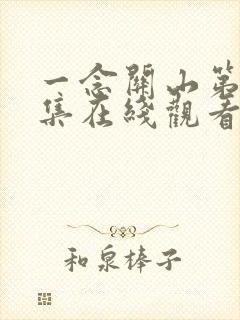 一念關山第
集在綫觀看
和泉棒子